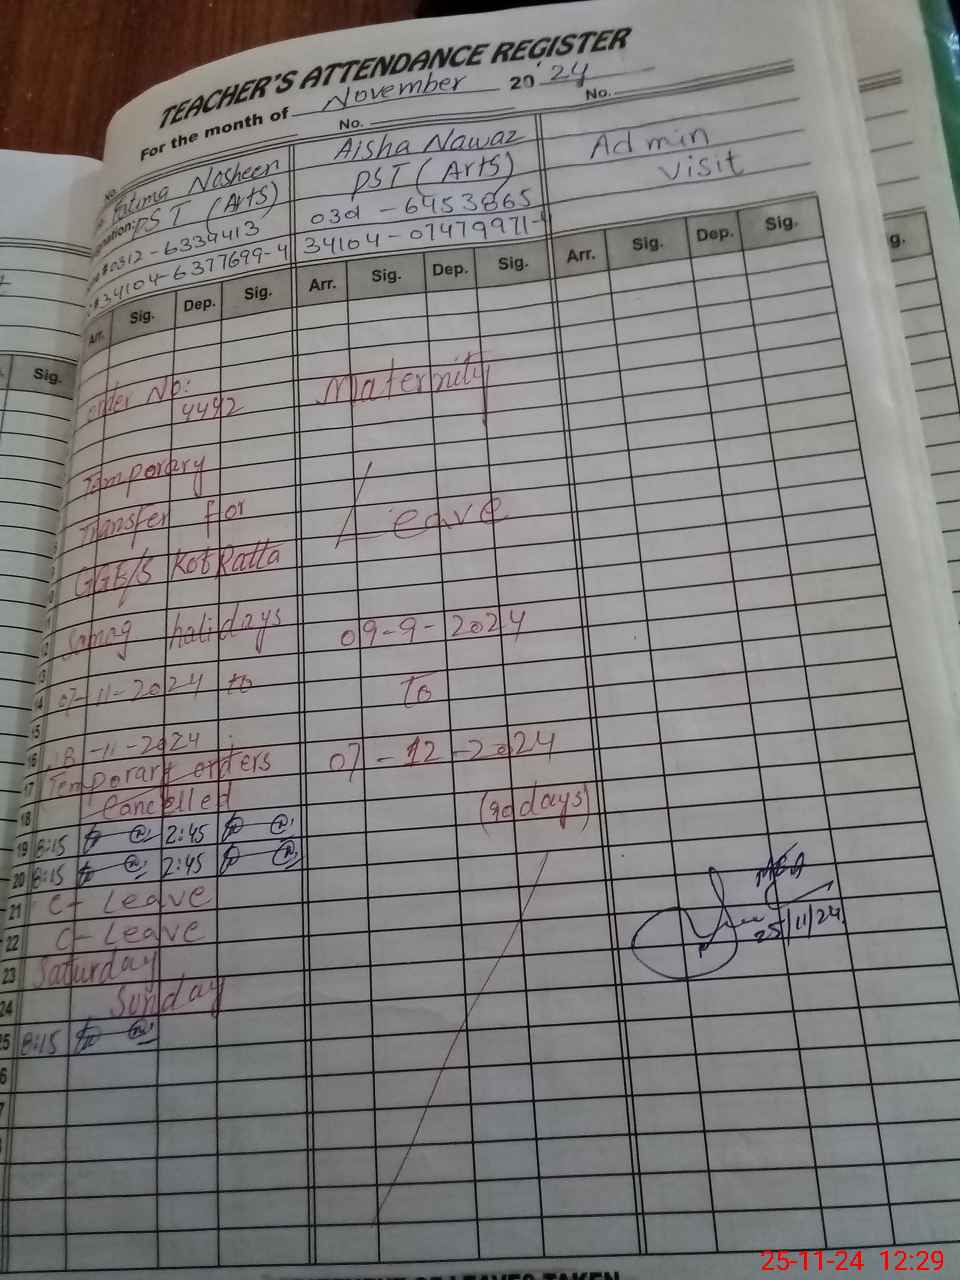 TEACHER'S ATTENDANCE REGISTER
For the month of November 2024
No. No. No.
Fatima Nosheen
PST (Arts)
0312-6334413
34104-6377699-4
Aisha Nawaz
PST (Arts)
03d - 6453865
34104-07479971-
Admin
Visit
Arr. Sig. Dep. Sig. Arr. Sig. Dep. Sig. Arr. Sig. Dep. Sig.
Sig.
g.
order No:
4442
Temporary
Transfer for
GGE/S Kot Ratta
Samog halidays
07-11-2024 to
-11-2024
Temporary orders
Cancelled
Maternity
Leave
09-9-2024
To
07-12-2024
(90 days)
13
14
15
16
17
18
19 8:15 2:45
20 8:15 2:45
21 C- Leave
22 C- Leave
23 Saturday
24 Sunday
25 8:15
25/11/24
25-11-24 12:29